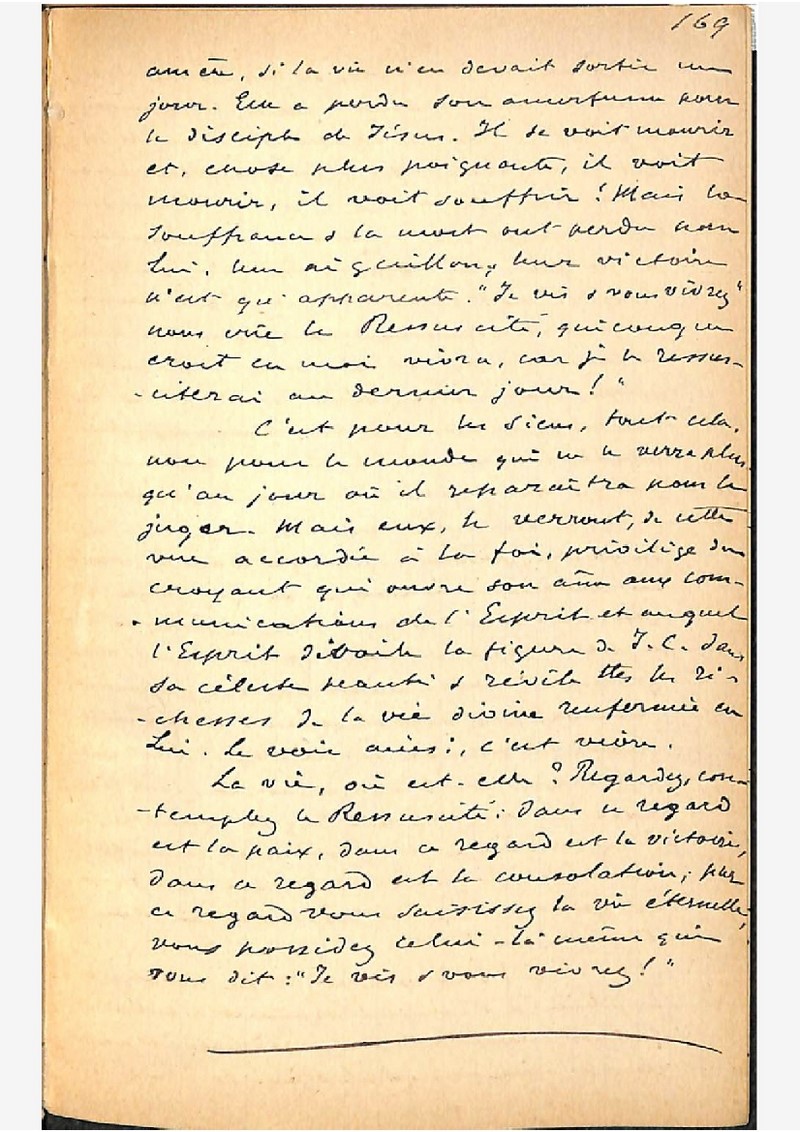 169
amère, si la vie n'en devait sortir un
jour. Elle a perdu son amertume pour
le disciple de Jésus. Il se voit mourir
et, chose plus poignante, il voit
mourir, il voit souffrir ! Mais la
souffrance & la mort ont perdu pour
Lui, leur aiguillon, leur victoire
n'est qu'apparente. "Je vis & vous vivrez"
nous crie le Ressuscité, quiconque
croit en moi vivra, car je le ressus-
-citerai au dernier jour ! "
C'est pour les siens, tout cela,
non pour le monde qui ne le verra plus
qu'au jour où il reparaîtra pour le
juger. Mais eux, le verront, de cette
vue accordée à la foi, privilège du
croyant qui ouvre son âme aux com-
-munications de l'Esprit et auquel
l'Esprit dévoile la figure de J. C. dans
sa céleste beauté & révèle ttes les ri-
-chesses de la vie divine renfermée en
Lui. Le voir ainsi, c'est vivre.
La vie, où est-elle ? Regardez, con-
-templez le Ressuscité : dans ce regard
est la paix, dans ce regard est la victoire,
dans ce regard est la consolation ; par
ce regard vous saisissez la vie éternelle,
vous possédez celui-là même qui
vous dit : "Je vis & vous vivrez ! "